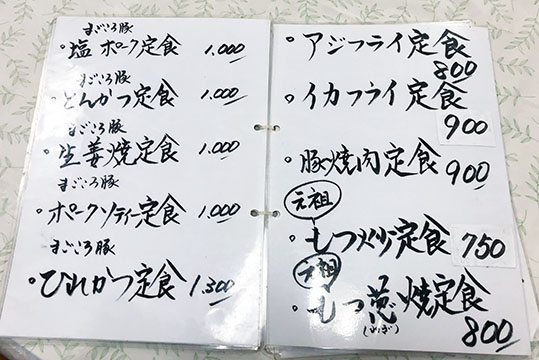 まごころ豚
・塩ポーク定食 1,000
まごころ豚
・とんかつ定食 1,000
まごころ豚
・生姜焼定食 1,000
まごころ豚
・ポークソティー定食 1,000
まごころ豚
・ひれかつ定食 1,300
・アジフライ定食 800
・イカフライ定食 900
・豚焼肉定食 900
元祖
・もつ炒定食 750
元祖
・もつ葱焼定食 800
(ねぎ)